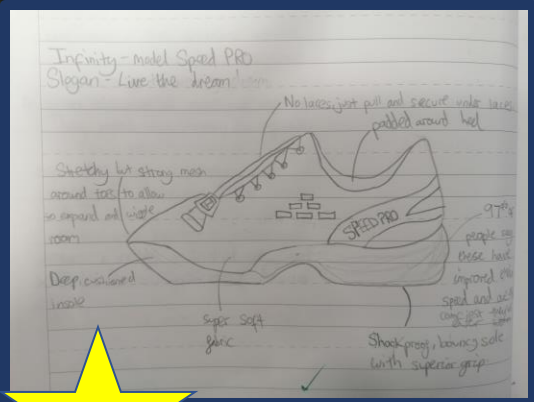 Infinity - model Speed PRO
Slogan - Live the dream
No laces, just pull and secure under laces
padded around heel
Stretchy but strong mesh
around toes to allow
so expand and wiggle
room
SPEED PRO
97%
people say
these have
improved
speed and
Deep, cushioned
insole
super soft
fabric
Shockproof, bouncy sole
with superior grip